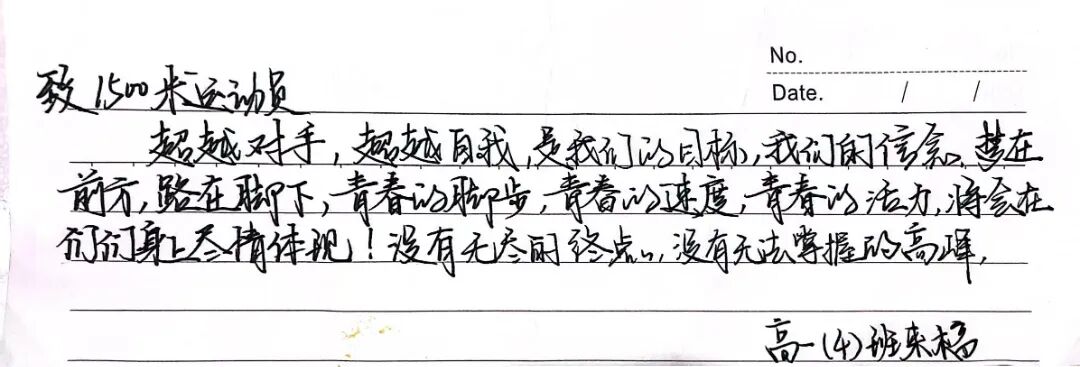 No.
Date. / /
致1500米运动员
超越对手，超越自我，是我们的目标，我们的信念。梦在
前方，路在脚下，青春的脚步，青春的速度，青春的活力，将会在
们们身上尽情体现！没有无尽的终点，没有无法掌握的高峰，
高一(4)班来稿